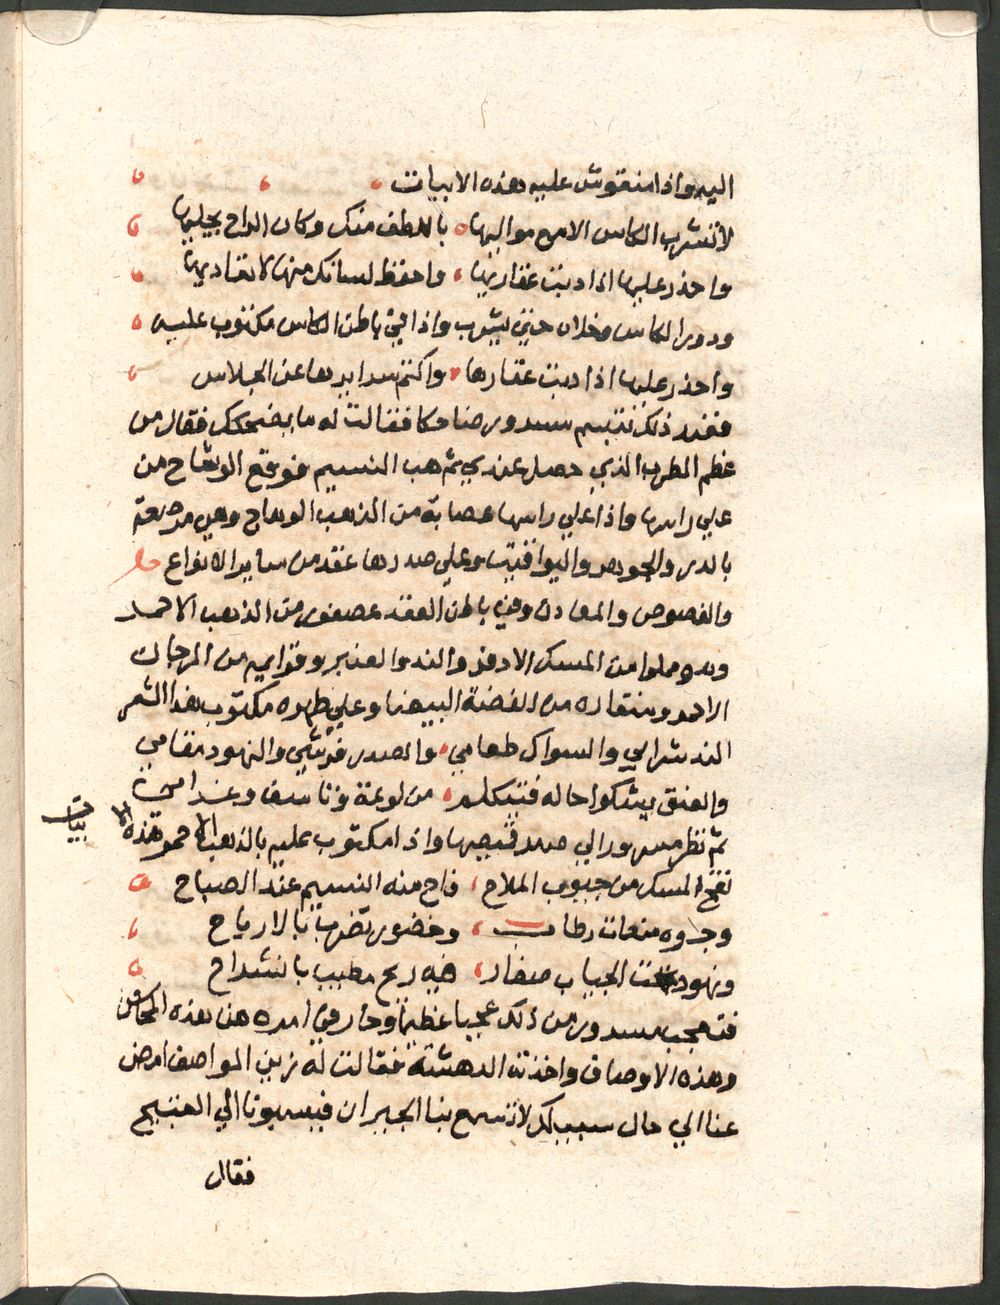 اليه واذا منقوش عليه هذه الابيات
لا تشرب الكاس الا مع مواليها باللطف منك وكان الراح يجليها
واحذر عليها اذا دبت عقاربها واحفظ لسانك منها لا تعاديها
ودور الكاس وخلاه حتي يشرب واذا في باطن الكاس مكتوب عليه
واحذر عليها اذا دبت عقاربها واكتم سرايرها عن الجلاس
فعند ذلك تبسم مسرور ضاحكا فقالت له ما يضحكك فقال من
عظم الطرب الذي حصل عندي ثم هب النسيم فوقع الوشاح من
علي راسها واذا علي راسها عصابة من الذهب الوهاج وهي مرصعة
بالدر والجوهر واليواقيت وعلي صدرها عقد من ساير الانواع
والفصوص والمعادن وفي باطن العقد عصفور من الذهب الاحمر
وهو مملوا من المسك الادفر والند والعنبر وقوايمه من المرجان
الاحمر ومنقاره من الفضة البيضا وعلي ظهره مكتوب هذا الشعر
الند شرابي والسواك طعامي والصدر فرشي والنهود مقامي
والعنق يشكوا حاله فتكلم من لوعة وتاسف وغرامي
ثم نظر مسرور الي صدر قميصها واذا مكتوب عليه بالذهب الاحمر هذه الا
بيات
نفح المسك من جيوب الملاح فاح منه النسيم عند الصباح
وجوه منعمات رطاب وخصور تضرب بالارياح
ونهود تحت الجياب صغار فيه ريح مطيب بانشراح
فتعجب مسرور من ذلك عجبا عظيما وحار في امره من هذه المحاسن
وهذه الاوصاف واخذته الدهشة فقالت له زين المواصف امض
عنا الي حال سبيلك لا تسمع بنا الجيران فينسبونا الي القبيح
فقال